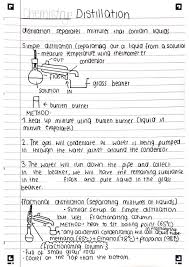 Chemistry Distillation
distillation separates mixtures that contain liquids
Simple distillation (separating out a liquid from a solution)
measure temperature using thermometer
OUT
condenser
glass beaker
IN
bunsen burner
METHOD:
1. heat up mixture using bunsen burner (liquid in mixture evaporates)
2. The gas will condense as water is being pumped in through the water jacket around the condenser
3. The water will run down the pipe and collect in the beaker, we will have the remaining substance in the flask and pure liquid in the glass beaker.
fractional distillation (separating mixtures of liquids)
- Similar setup as Simple distillation but uses fractionating column
METHOD: heat to 1st boiling point (65°C)
fractionating column
methanol (65°C) - Ethanol (78°C) - propanol (98°C)
- Full of small glass beads
- Cooler on the top than the bottom